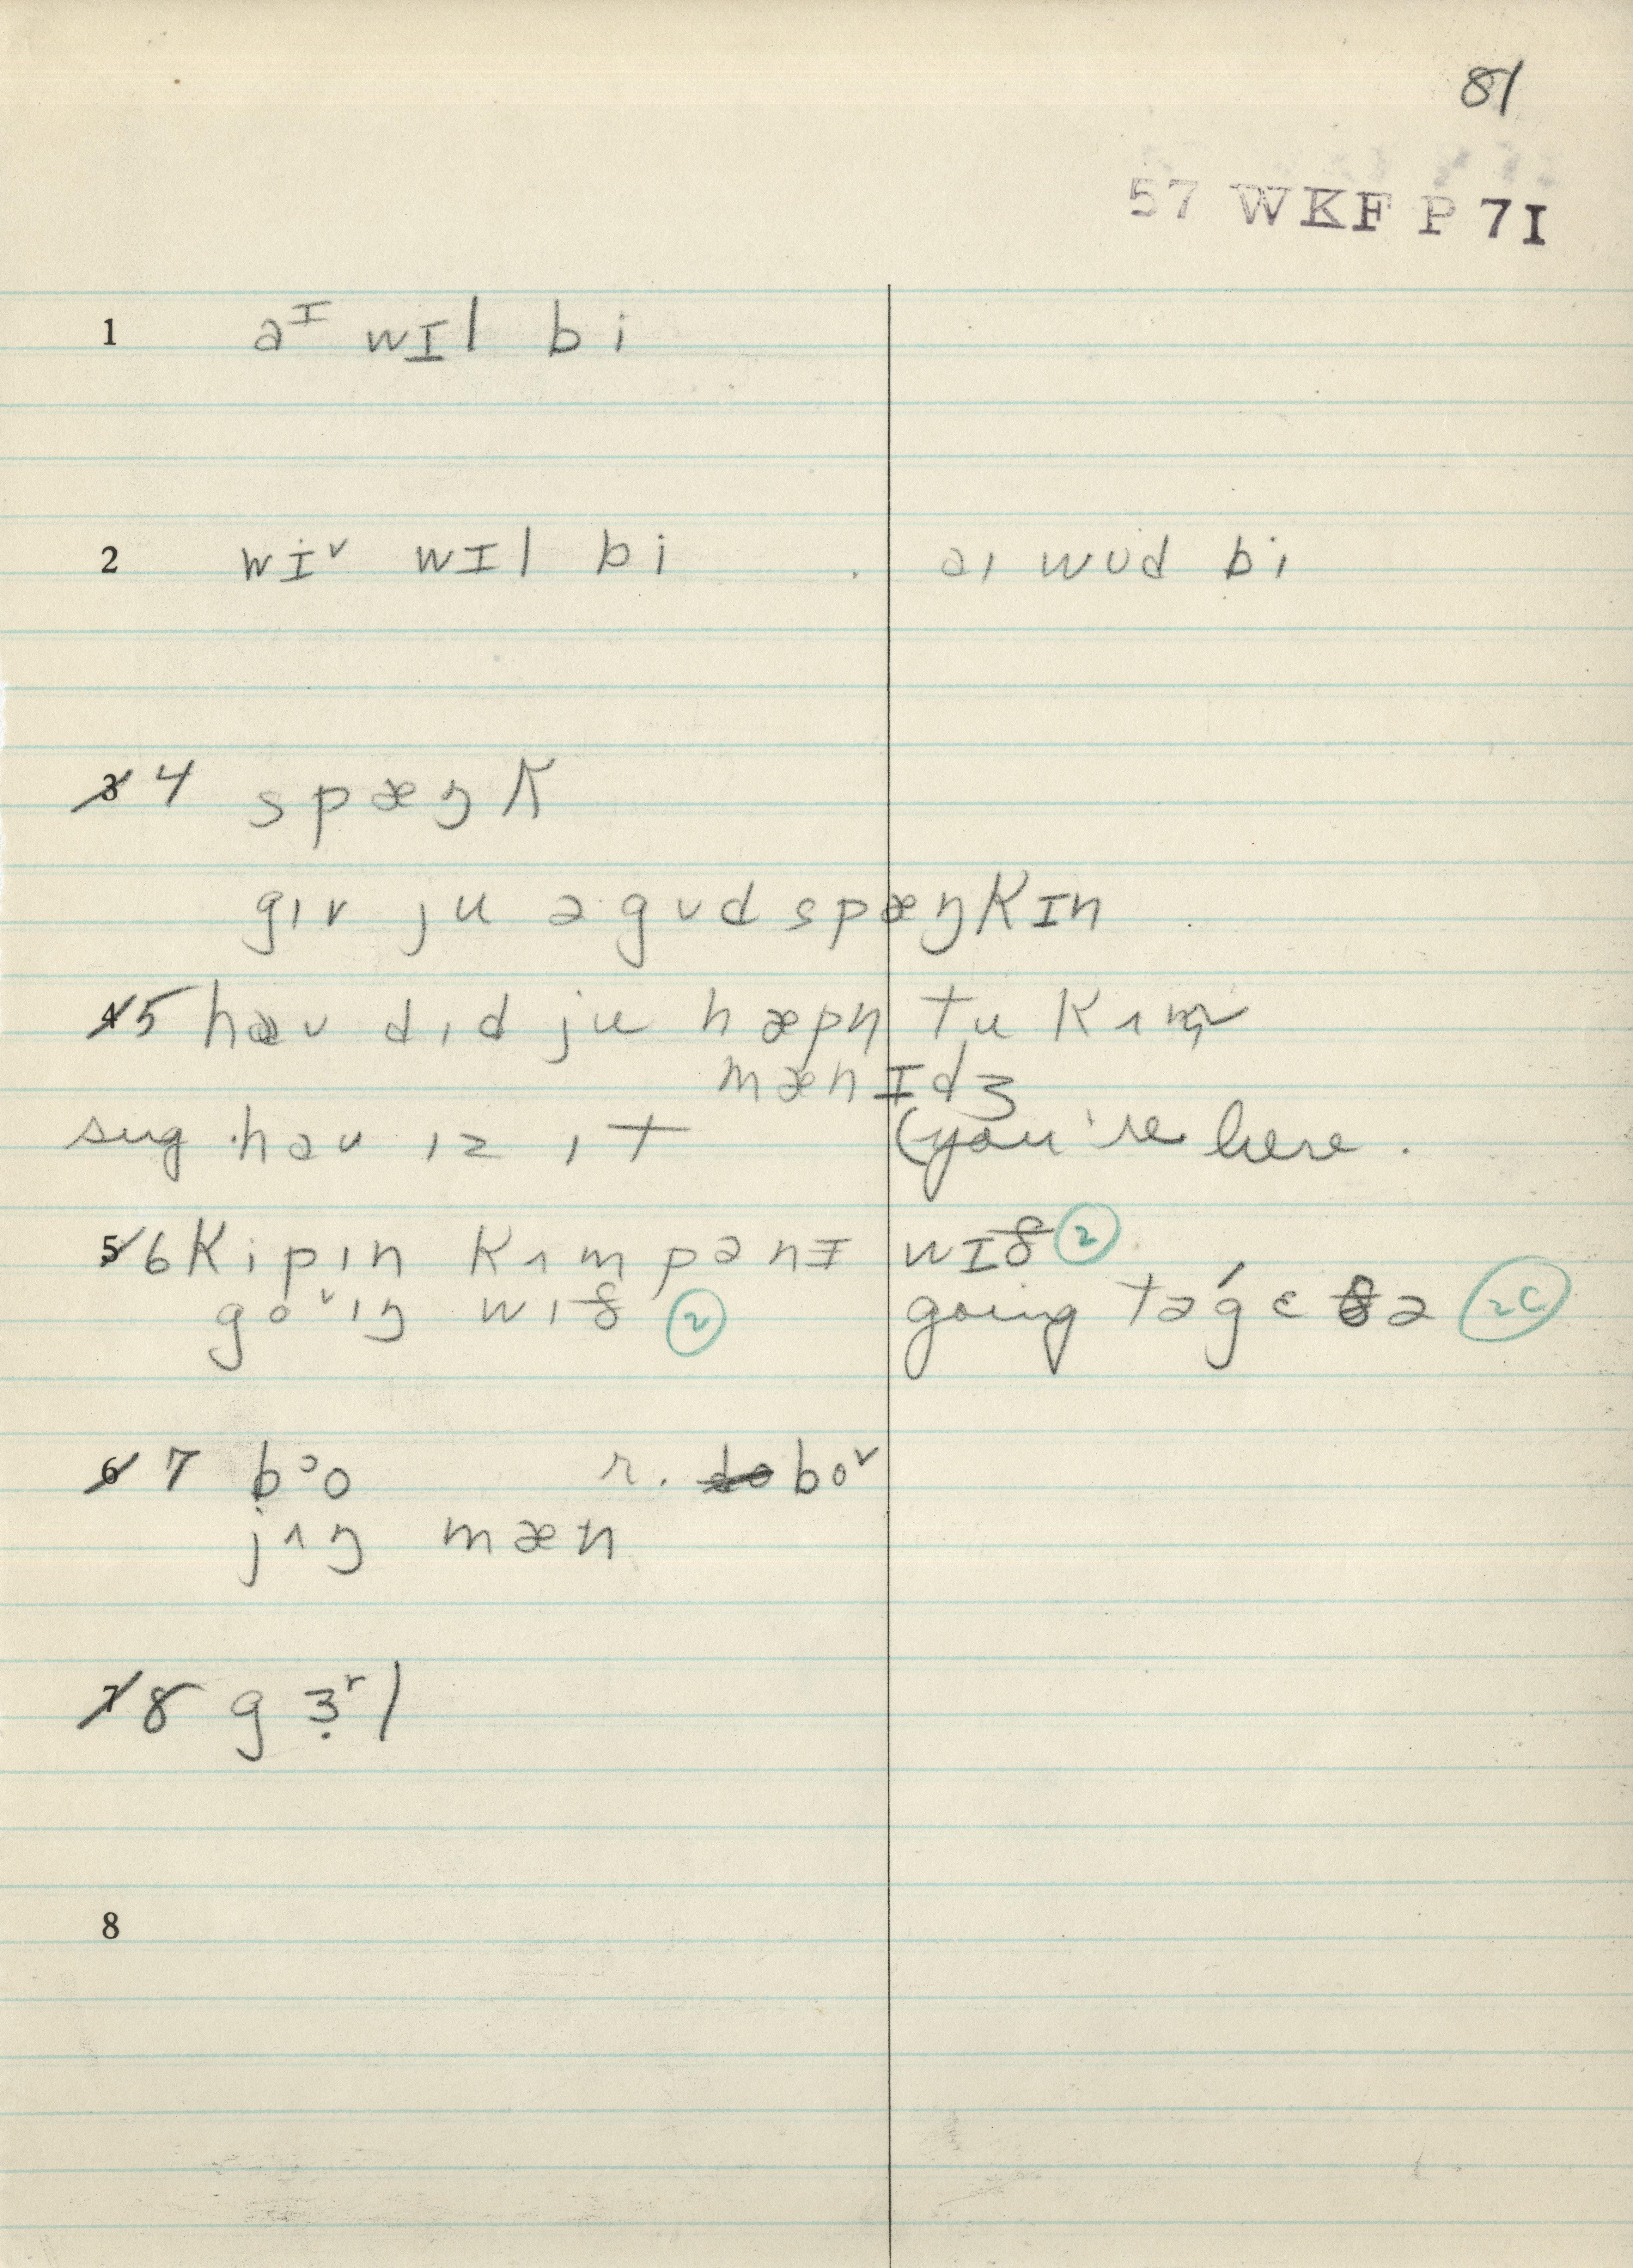 81
57 WKF P 7I
1 aᴵ wɪl bi
2 wiᵛ wɪl bi aɪ wʊd bi
3 4 spæŋk
gɪv ju ə gʊd spæŋkɪn
4 5 haʊ dɪd ju hæpn̩ tu kʌm
mænɪdʒ
sug haʊ ɪz ɪt (you're here.
5 6 kipɪn kʌmpənɪ wɪð ②
goᶹɪŋ wɪð ② going təgɛðə 2C
6 7 bᵓo r. do boᶹ
jʌŋ mæn
7 8 gɜ̣ʳl
8